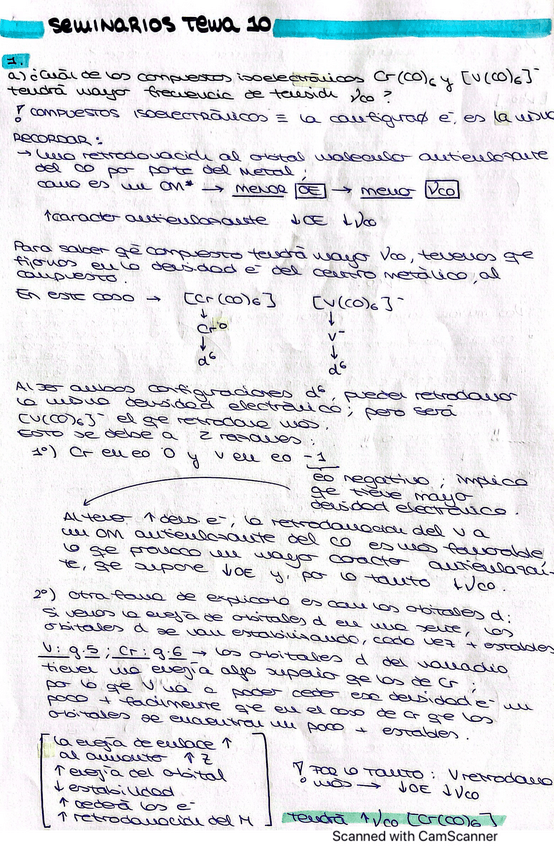 SEMINARIOS TEMA 10
1.
a) ¿Cuál de los compuestos isoelectrónicos Cr(CO)6 y [V(CO)6]⁻
tendrá mayor frecuencia de tensión νco?
! COMPUESTOS ISOELECTRÓNICOS ≡ la configurac e⁻, es la misma
RECORDAR:
→ Una retrodonación al orbital molecular antienlazante
del CO por parte del Metal,
como es un OM* → menor OE → menor νco
↑caracter antienlazante ↓OE ↓νco
Para saber qé compuesto tendrá mayor νco, tenemos qe
fijarnos en la densidad e⁻ del centro metálico, al
compuesto.
En este caso → [Cr(CO)6] [V(CO)6]⁻
↓ ↓
Cr⁰ V⁻
↓ ↓
d⁶ d⁶
Al ser ambas configuraciones d⁶, pueden retrodonar
la misma densidad electrónica; pero será
[V(CO)6]⁻ el qe retrodone más.
Esto se debe a 2 razones:
1º) Cr en eo 0 y V en eo -1
eo negativo, implica
qe tiene mayor
densidad electrónica.
Al tener ↑dens. e⁻, la retrodonación del V a
un OM antienlazante del CO es más favorable
lo qe provoca un mayor caracter antienlazan-
te, qe supone ↓OE y, por lo tanto ↓νco.
2º) Otra forma de explicarlo es con los orbitales d:
Si vemos la energía de orbitales d en una serie, los
orbitales d se van estabilizando, cada vez + estables
V: g.5; Cr: g.6 → los orbitales d del vanadio
tienen una energía algo superior qe los de Cr,
por lo qe V va a poder ceder esa densidad e⁻ un
poco + fácilmente qe en el caso de Cr qe los
orbitales se encuentran un poco + estables.
la energía de enlace ↑
al aumento ↑Z
↑ energía del orbital
↓ estabilidad
↑ cederá los e⁻
↑ retrodonación del M
! POR LO TANTO: V retrodona
más → ↓OE ↓νco
tendrá ↑νco [Cr(CO)6]
Scanned with CamScanner